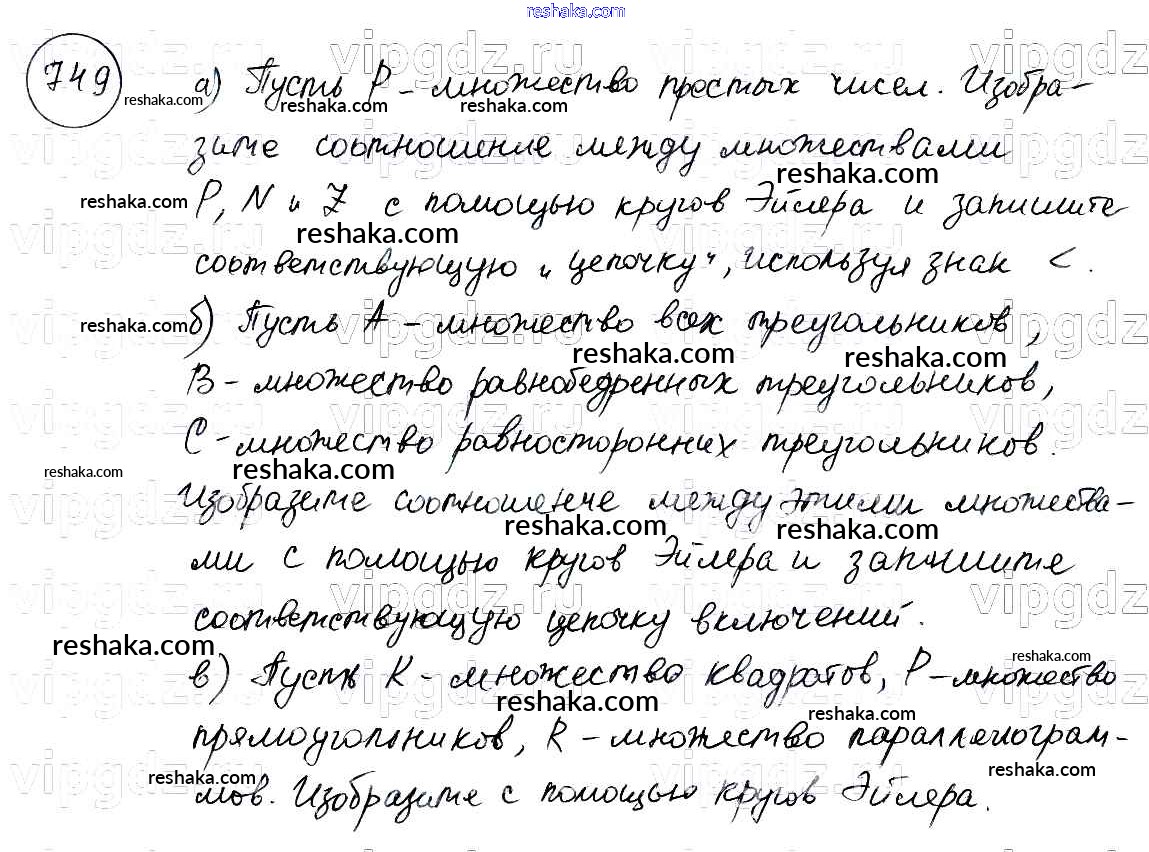 reshaka.com
749 а) Пусть P - множество простых чисел. Изобра-
зите соотношение между множествами
P, N и Z с помощью кругов Эйлера и запишите
соответствующую "цепочку", используя знак <.
б) Пусть A - множество всех треугольников,
B - множество равнобедренных треугольников,
C - множество равносторонних треугольников.
Изобразите соотношение между этими множества-
ми с помощью кругов Эйлера и запишите
соответствующую цепочку включений.
в) Пусть K - множество квадратов, P - множество
прямоугольников, R - множество параллелограм-
мов. Изобразите с помощью кругов Эйлера.